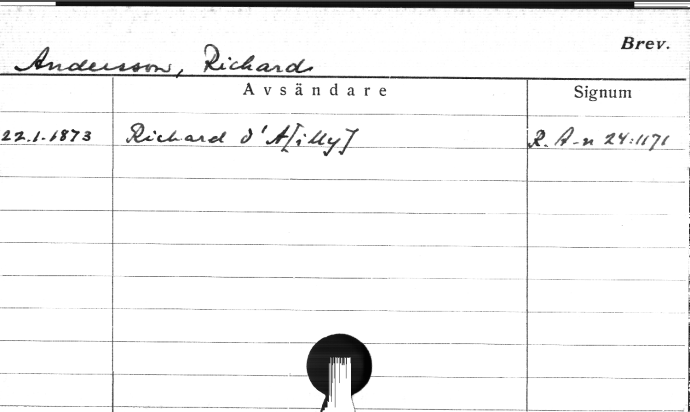 Brev.
Andersson, Richard
Avsändare Signum
22.1.1873 Richard d'A[illy] R. A-n 24:1171